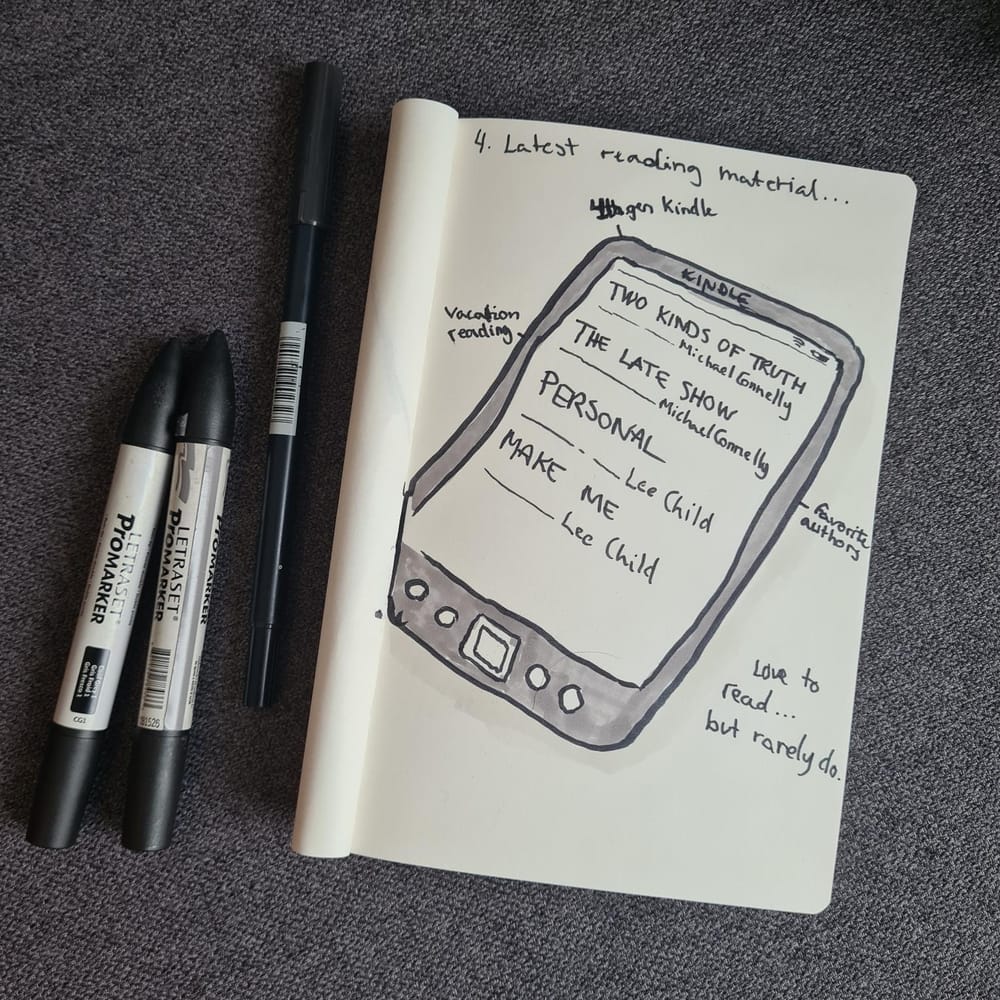 4. Latest reading material...
gen Kindle
KINDLE
vacation
reading
TWO KINDS OF TRUTH
Michael Connelly
THE LATE SHOW
Michael Connelly
PERSONAL
Lee Child
MAKE ME
Lee Child
favorite
authors
Love to
read...
but rarely do.
LETRASET
PROMARKER
CG1
LETRASET®
PROMARKER
PROMARKER